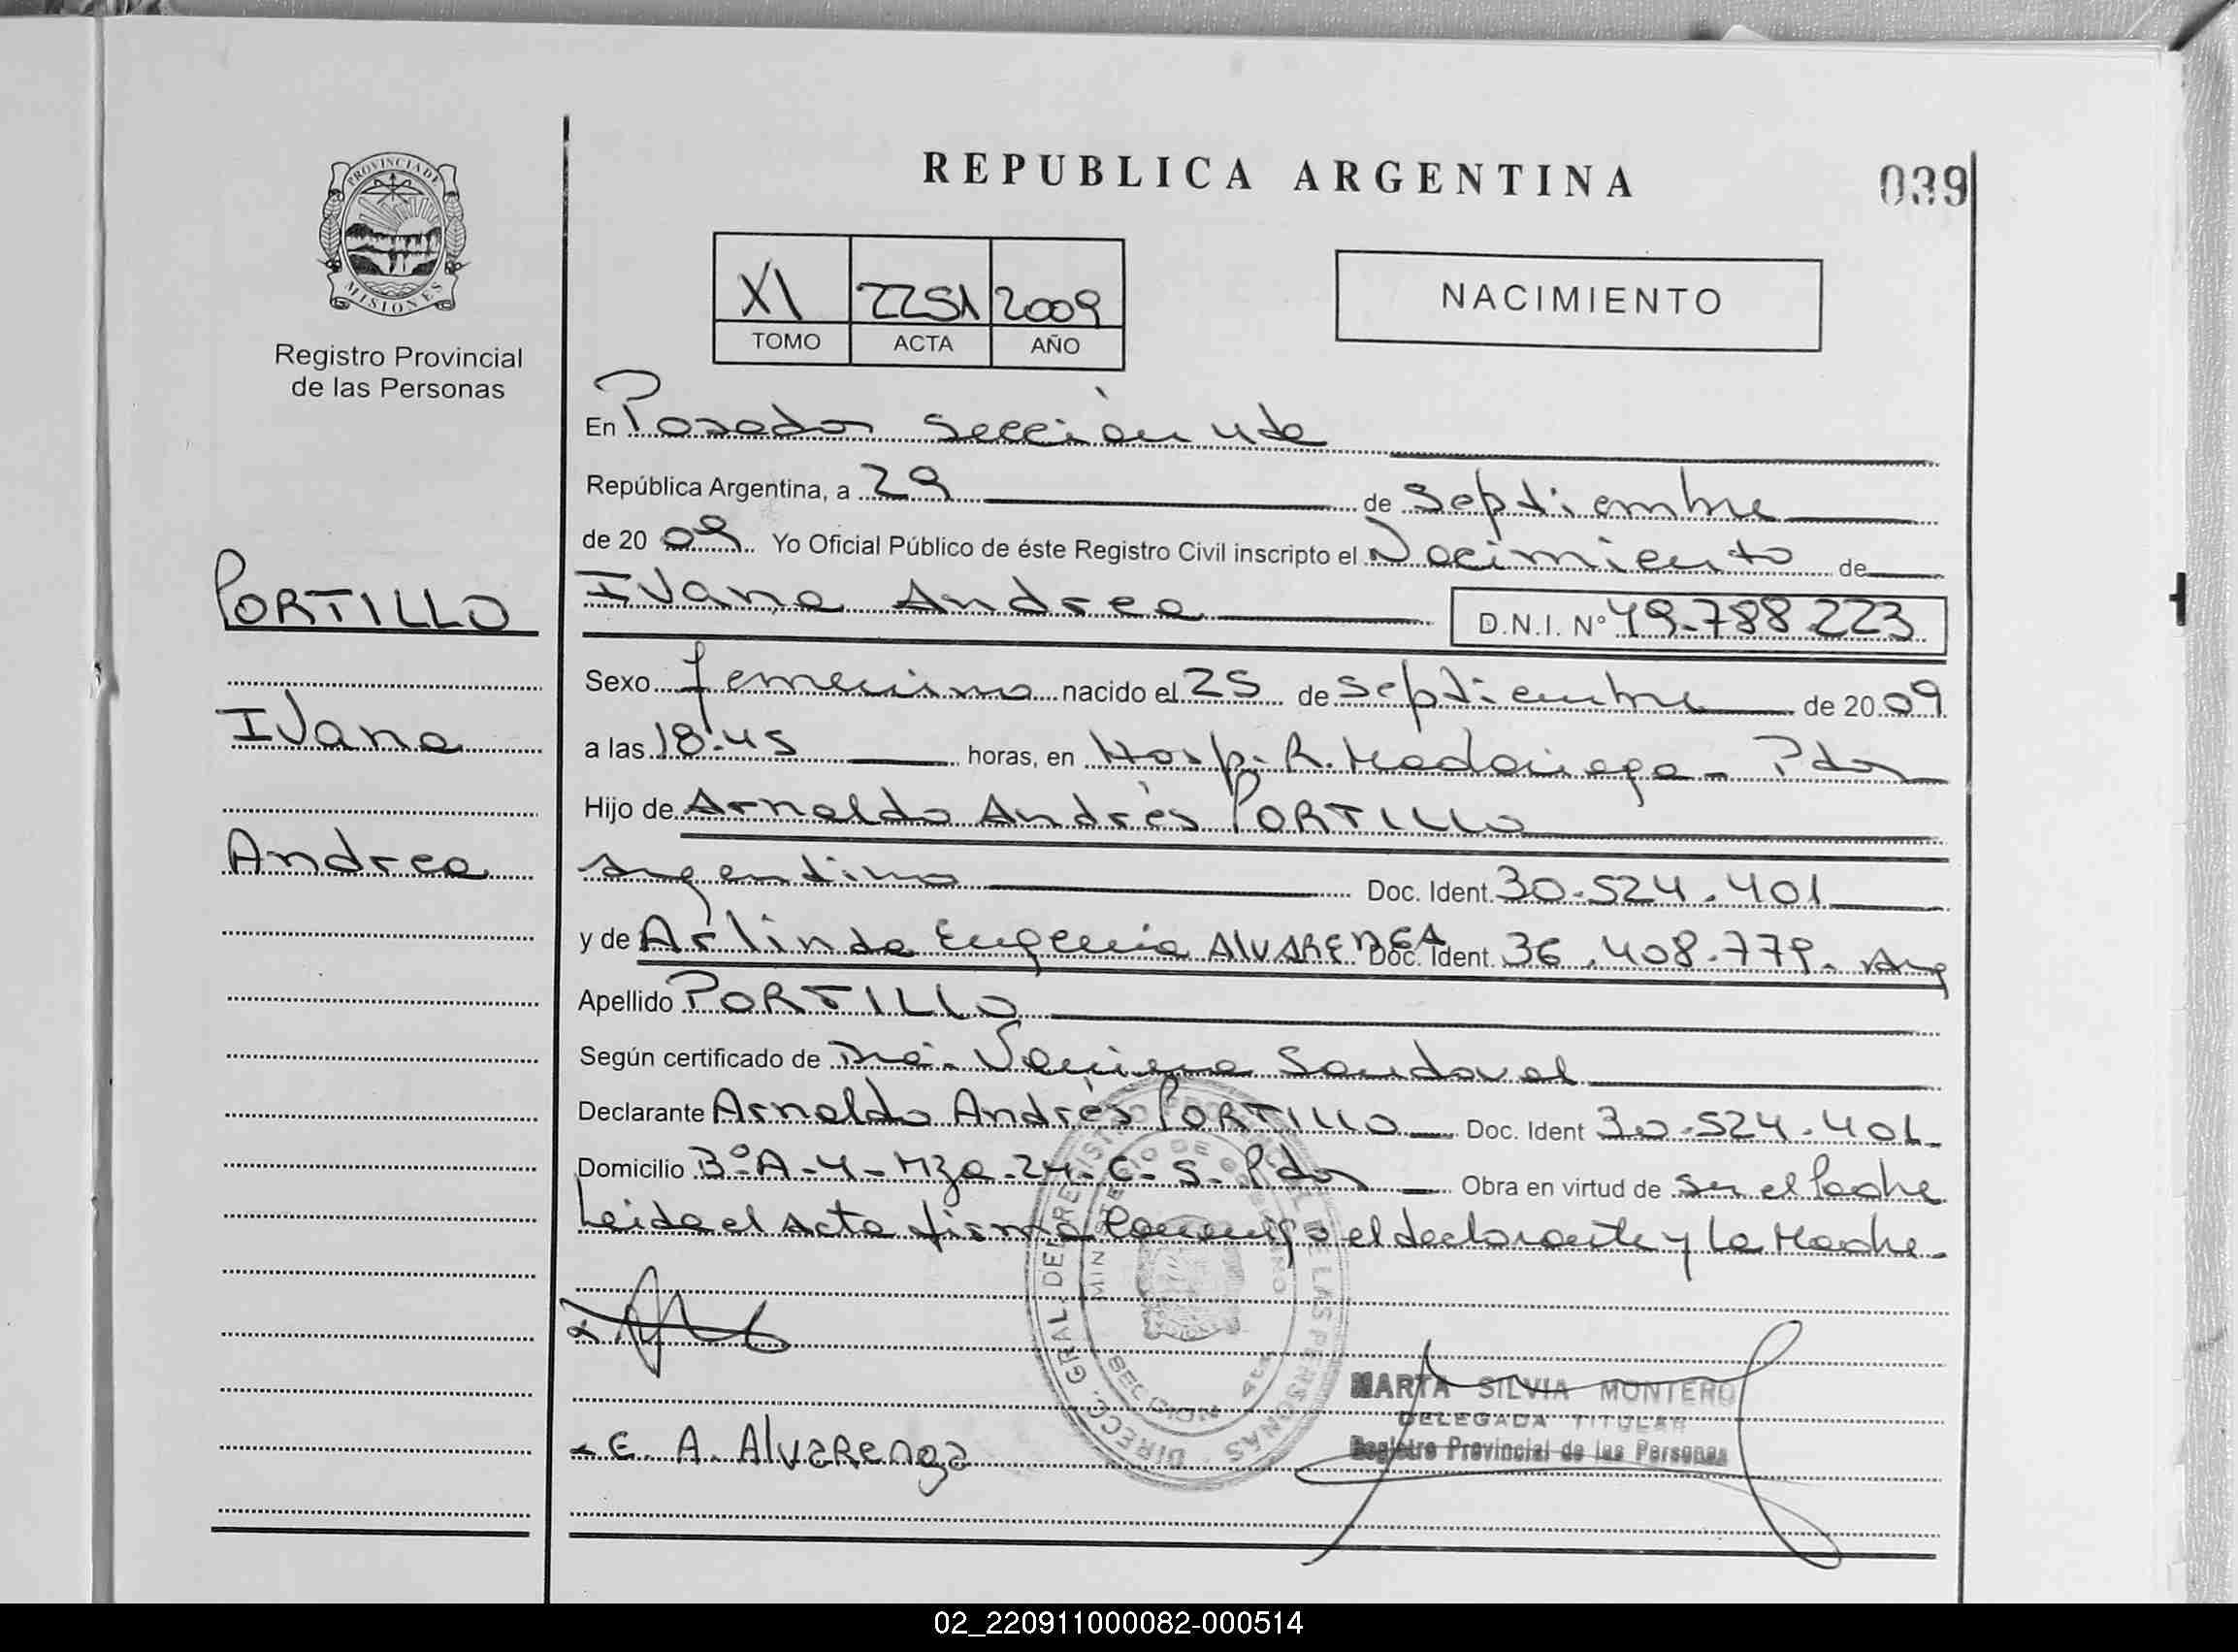 REPUBLICA ARGENTINA
039
PROVINCIA DE
MISIONES
Registro Provincial
de las Personas
XI 2251 2009
TOMO ACTA AÑO
NACIMIENTO
En Posadas Sección 4ta
República Argentina, a 29 de Septiembre
de 2009 Yo Oficial Público de éste Registro Civil inscripto el Nacimiento de
Ivana Andrea D.N.I. Nº 49.788.223
PORTILLO
Ivana
Andrea
Sexo femenino nacido el 25 de Septiembre de 2009
a las 18:45 horas, en Hosp. R. Madariaga - Pdas
Hijo de Arnaldo Andrés PORTILLO
Argentino Doc. Ident. 30.524.401
y de Arlinda Eugenia ALVARENGA Doc. Ident. 36.408.779. Arg
Apellido PORTILLO
Según certificado de Dra. Sandoval
Declarante Arnaldo Andrés PORTILLO Doc. Ident 30.524.401
Domicilio Bº A-4 - Mza-24-C-5- Pdas Obra en virtud de Ser el Padre
Leida el Acta firma conmigo el declarante y la Madre.
DIRECC. GRAL. DEL REGISTRO PROVINCIAL DE LAS PERSONAS
MINISTERIO DE GOBIERNO
SECCION 4ta
MARTA SILVIA MONTERO
DELEGADA TITULAR
Registro Provincial de las Personas
E. A. Alvarenga
02_220911000082-000514